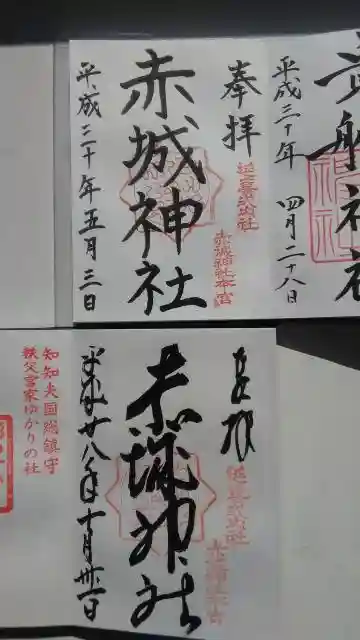 貴船神社
平成三十年 四月二十八日
奉拝
延喜式内社
赤城神社本宮
赤城神社
平成三十年五月三日
奉拝
延喜式内社
赤城神社本宮
赤城神社
平成廿八年十月卅一日
知知夫国総鎮守
秩父宮家ゆかりの社